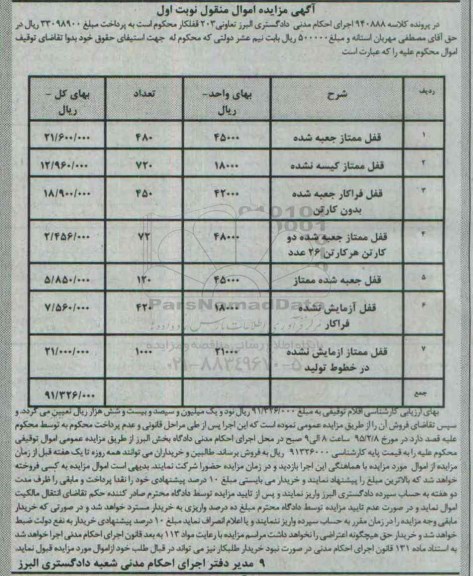 آگهی مزایده اموال منقول نوبت اول
در پرونده کلاسه ۹۴۰۸۸۸ اجرای احکام مدنی دادگستری البرز تعاونی۲۰۳ قفلکار محکوم است به پرداخت مبلغ ۳۳۰۹۸۹۰۰ ریال در
حق آقای مصطفی مهربان استانه و مبلغ ۵۰۰۰۰۰ ریال بابت نیم عشر دولتی که محکوم له جهت استیفای حقوق خود بدوا تقاضای توقیف
اموال محکوم علیه را که عبارت است
ردیف شرح بهای واحد– ریال تعداد بهای کل – ریال
۱ قفل ممتاز جعبه شده ۴۵۰۰۰ ۴۸۰ ۲۱/۶۰۰/۰۰۰
۲ قفل ممتاز کیسه نشده ۱۸۰۰۰ ۷۲۰ ۱۲/۹۶۰/۰۰۰
۳ قفل فراکار جعبه شده بدون کارتن ۴۲۰۰۰ ۴۵۰ ۱۸/۹۰۰/۰۰۰
۴ قفل ممتاز جعبه شده دو کارتن هرکارتن ۲۶ عدد ۴۸۰۰۰ ۷۲ ۲/۴۵۶/۰۰۰
۵ قفل جعبه شده ممتاز ۴۵۰۰۰ ۱۳۰ ۵/۸۵۰/۰۰۰
۶ قفل آزمایش نشده فراکار ۱۸۰۰۰ ۴۲۰ ۷/۵۶۰/۰۰۰
۷ قفل ممتاز ازمایش نشده در خطوط تولید ۲۱۰۰۰ ۱۰۰۰ ۲۱/۰۰۰/۰۰۰
جمع ۹۱/۳۲۶/۰۰۰
ParsNamadData
۰۲۱-۸۸۳۴۹۶۷۰-۵
بهای ارزیابی کارشناسی اقلام توقیفی به مبلغ ۹۱/۳۲۶/۰۰۰ ریال نود و یک میلیون و سیصد و بیست و شش هزار ریال تعیین می گردد. و
سپس تقاضای فروش آن را از طریق مزایده عمومی نموده است که این اجرا پس از طی مراحل قانونی و عدم پرداخت محکوم به توسط محکوم
علیه قصد دارد در مورخ ۹۵/۲/۸ ساعت ۸ الی ۹ صبح در محل اجرای احکام مدنی دادگاه بخش البرز از طریق مزایده عمومی اموال توقیفی
محکوم علیه را به قیمت پایه کارشناسی ۹۱۳۲۶۰۰۰ ریال به فروش برساند. طالبین و خریداران می توانند همه روزه تا یک هفته قبل از زمان
مزایده از اموال مورد مزایده با هماهنگی این اجرا بازدید و در زمان مزایده حضورا شرکت نمایند. بدیهی است اموال مزایده به کسی فروخته
خواهد شد که بالاترین مبلغ را پیشنهاد نمایند و خریدار می بایستی مبلغ ۱۰ درصد پیشنهادی خود را نقدا پرداخت و مابقی را ظرف مدت
دو هفته به حساب سپرده دادگستری البرز واریز نمایند و پس از تایید مزایده توسط دادگاه محترم صادر کننده حکم تقاضای انتقال مالکیت
اموال نماید و در صورت عدم تایید مزایده توسط دادگاه محترم مبلغ ده درصد واریزی به خریدار مسترد خواهد شد و در صورتی که خریدار
مابقی وجه مزایده را در زمان مقرر به حساب سپرده واریز ننمایند و یا اعلام انصراف نماید مبلغ ۱۰ درصد پیشنهادی خریدار به نفع دولت ضبط
خواهد شد و خریدار حق هیچگونه اعتراضی را نخواهد داشت مراسم مزایده با رعایت مواد ۱۱۳ به بعد قانون اجرای احکام مدنی اجرا خواهد شد
به استناد ماده ۱۳۱ قانون اجرای احکام مدنی در صورت نبود خریدار طلبکار نیز می تواند در قبال طلب خود ازاموال مورد مزایده قبول نماید.
۹ مدیر دفتر اجرای احکام مدنی شعبه دادگستری البرز